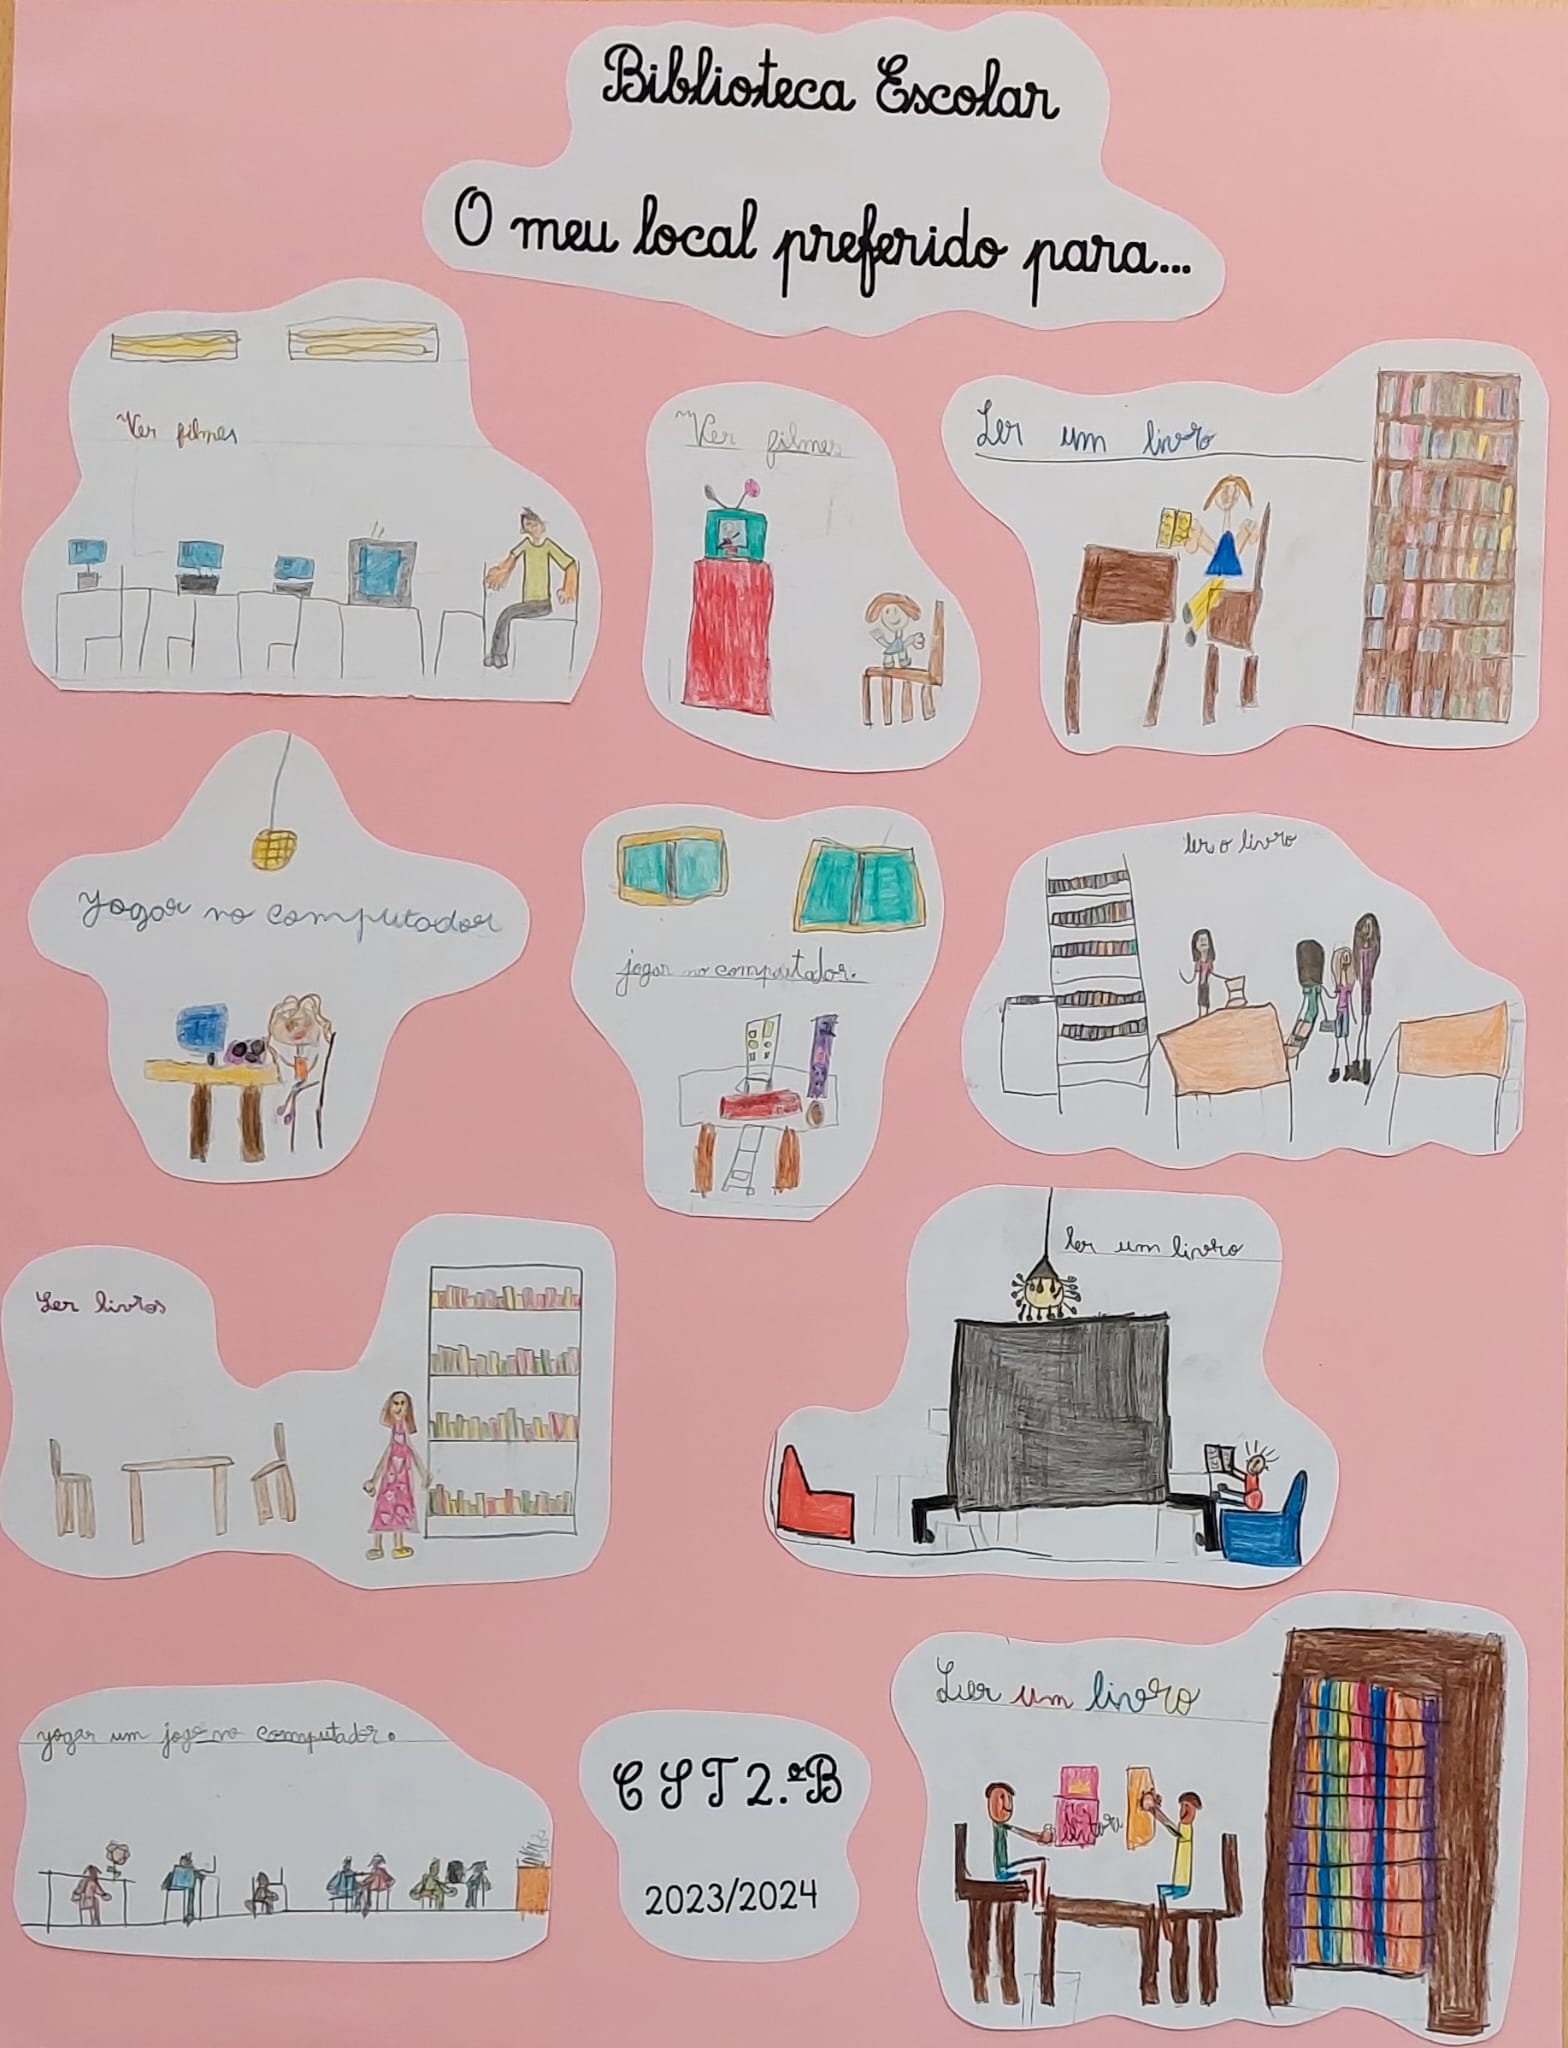 Biblioteca Escolar
O meu local preferido para...
Ver filmes
Ver filmes
Ler um livro
Jogar no computador
jogar no computador.
ler o livro
Ler livros
ler um livro
jogar um jogo no computador.
Ler um livro
leitura
CST 2.ºB
2023/2024